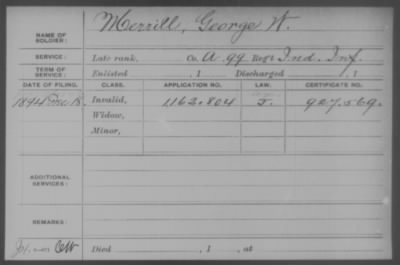 Merrill, George W.
NAME OF SOLDIER:
SERVICE: Late rank, Co. A. 99 Reg't Ind. Inf.
TERM OF SERVICE: Enlisted , 1 Discharged , 1
DATE OF FILING. CLASS. APPLICATION NO. LAW. CERTIFICATE NO.
1894 Dec 18. Invalid, 1162.804 927.569.
Widow,
Minor,
ADDITIONAL SERVICES:
REMARKS:
Died , 1 , at